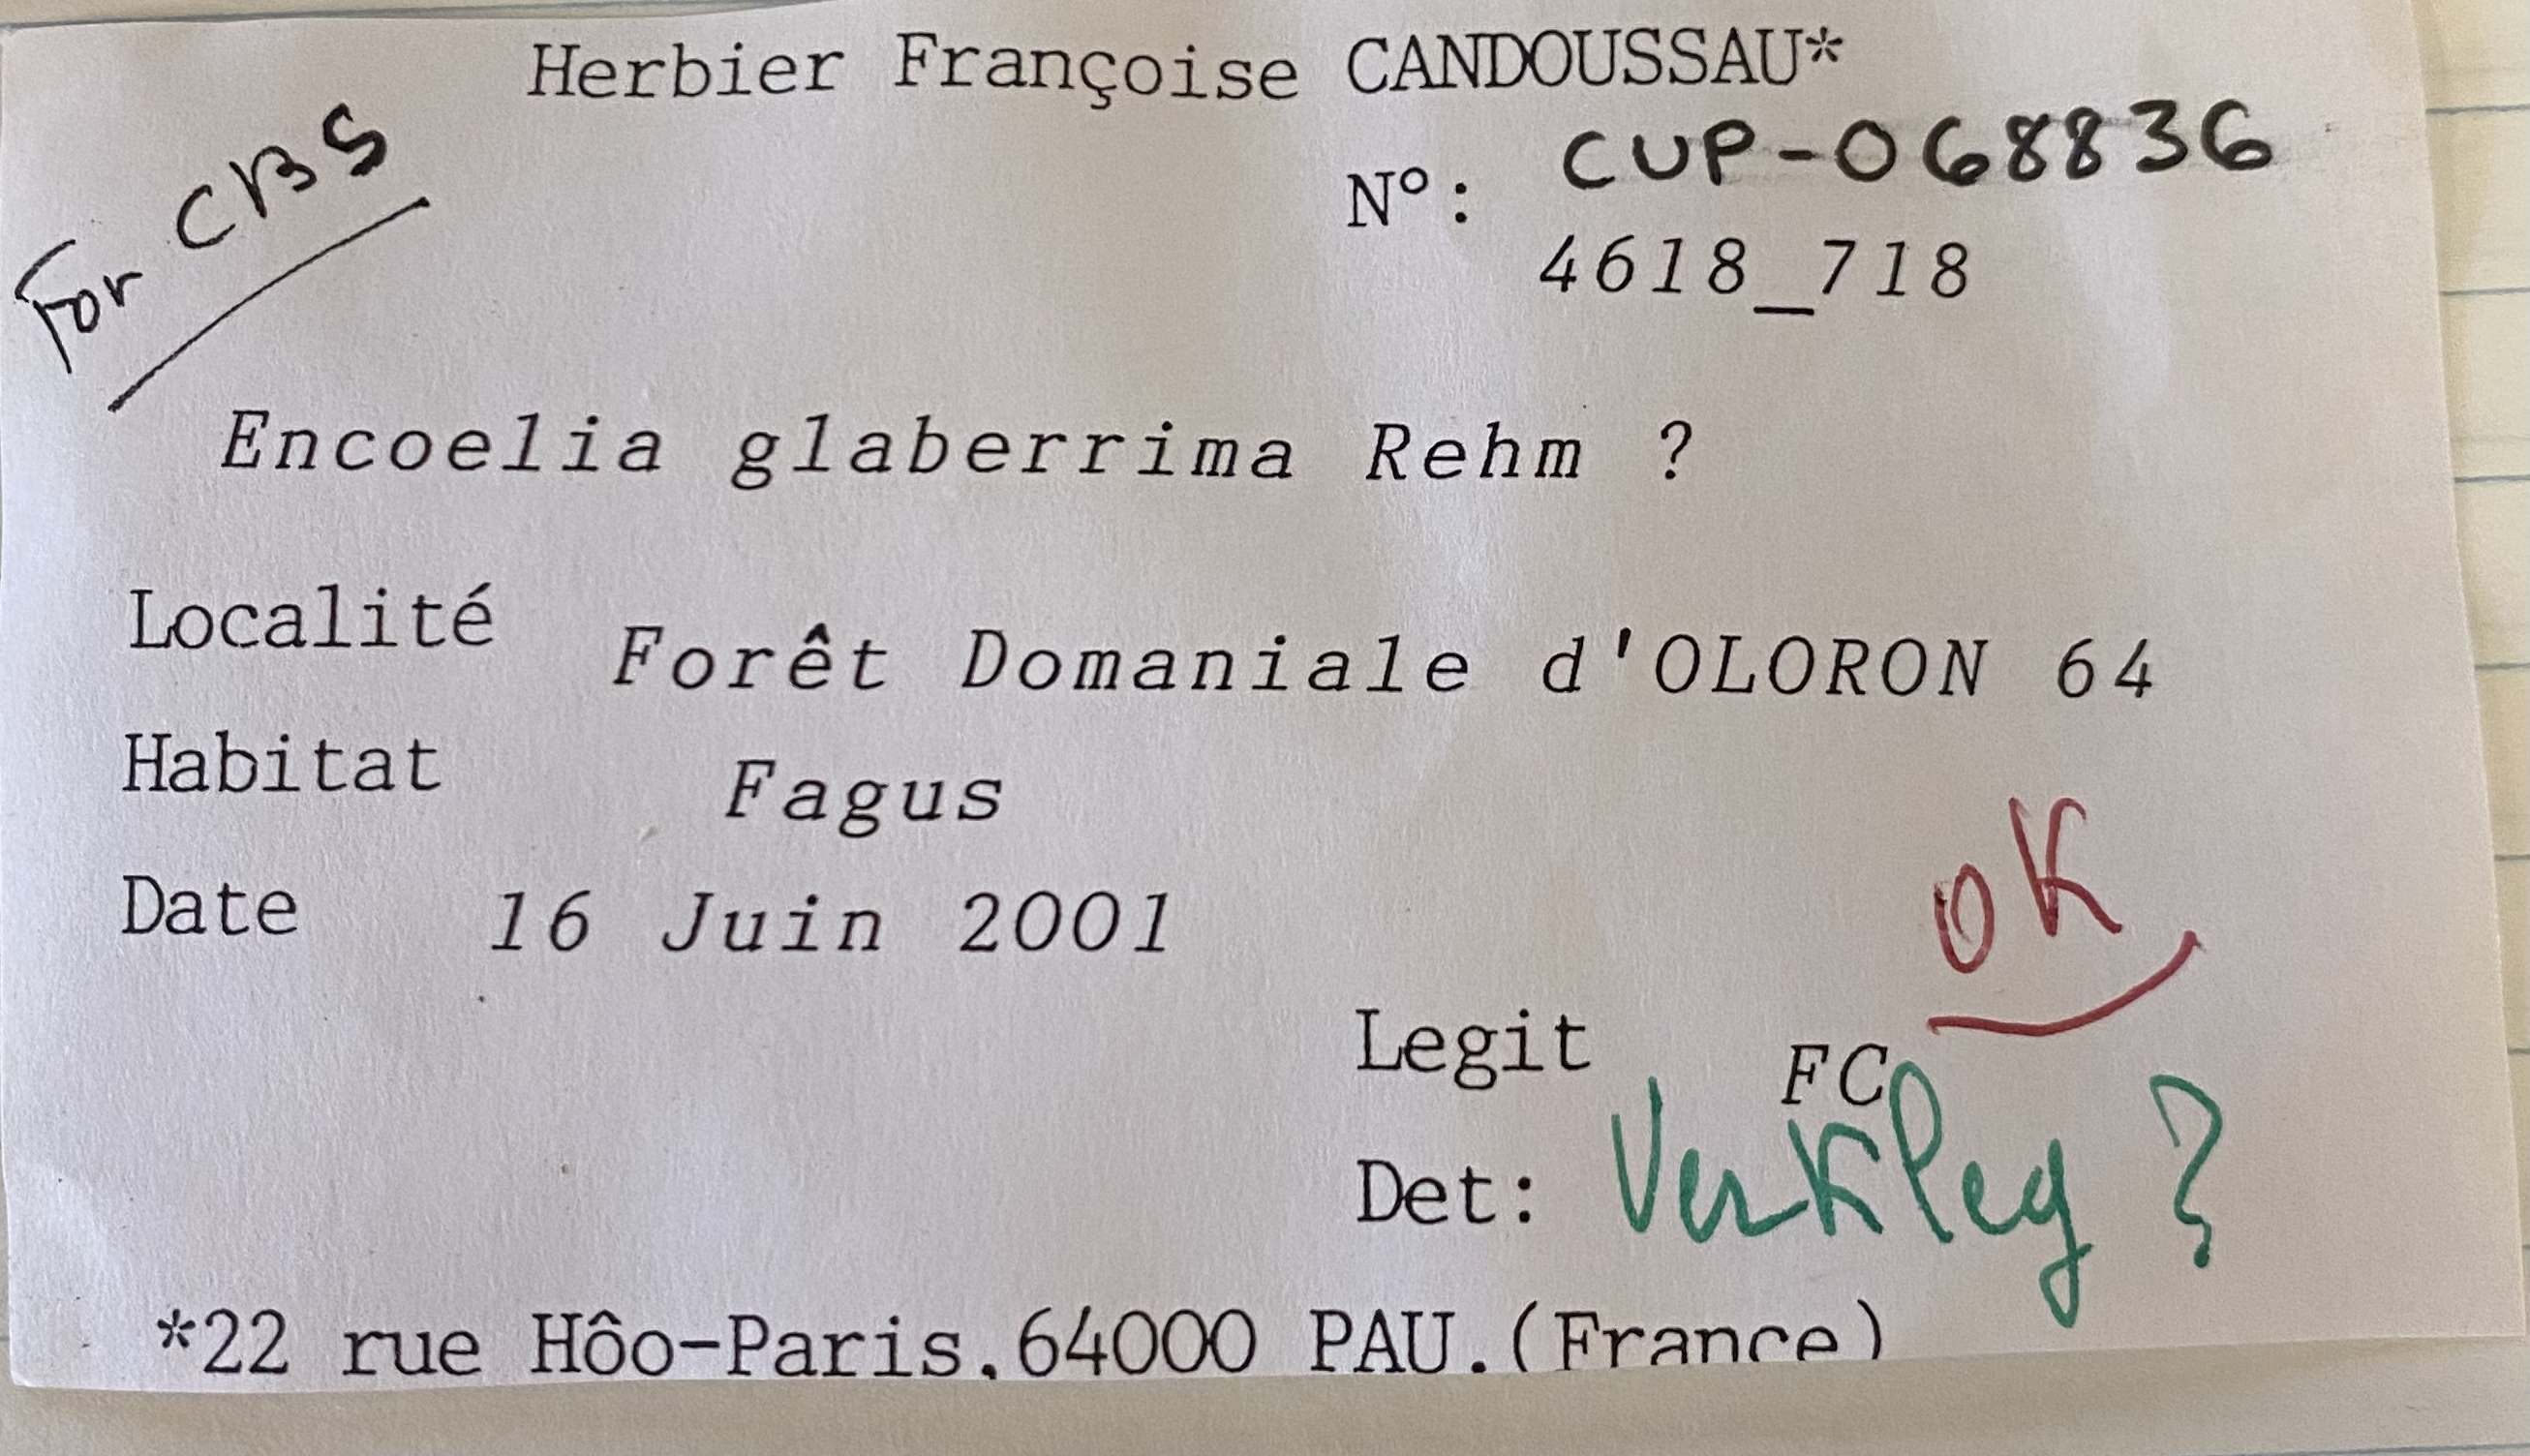 Herbier Françoise CANDOUSSAU*
For CBS
N°: CUP-068836
4618_718
Encoelia glaberrima Rehm ?
Localité Forêt Domaniale d'OLORON 64
Habitat Fagus
Date 16 Juin 2001
OK
Legit FC
Det: Verkley ?
*22 rue Hôo-Paris.64000 PAU.(France)